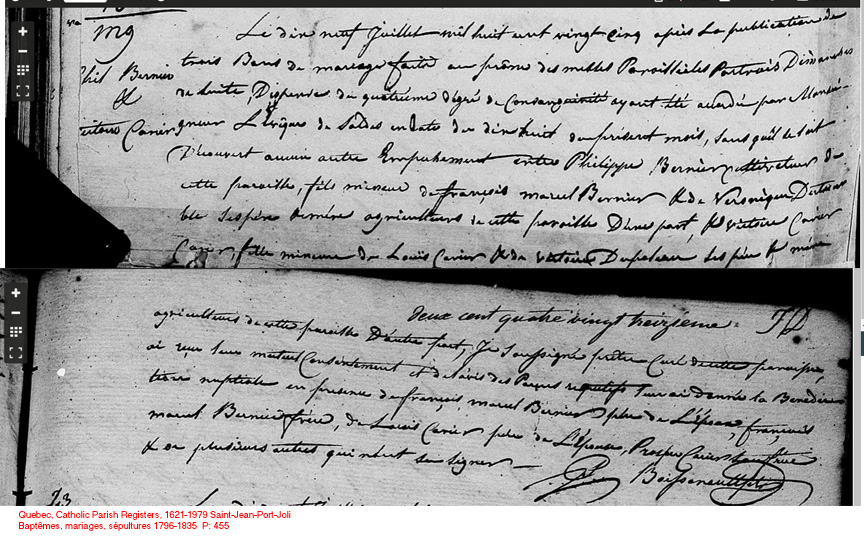 m9
Le dix neuf Juillet mil huit cent vingt cinq après la publication de
trois Bans de mariage faite au prône des messes Paroissiales Dimanches
de suite, Dispense du quatrième dégré de Consanguinité ayant été accordée par Monsei-
Phil Bernier
&
Victoire Carier
gneur L'évêque de Saldes en date du dixhuit du présent mois, sans qu'il se soit
Découvert aucun autre Empechement entre Philippe Bernier cultivateur de
cette paroisse, fils mineur de françois marcel Bernier & de Veronique
ble ses père & mère agriculteurs de cette paroisse D'une part, & Victoire Carier
Carier, fille mineure de Louis Carier & de Victoire Dupoleau ses père & mère
deux cent quatre vingt treizième
agriculteurs de cette paroisse D'autre part, Je Soussigné prêtre Curé de cette paroisse,
ai reçu leur mutuel Consentement et de l'avis des Parens requis leur ai donné la Bénédic
tion nuptiale en presence de françois marcel Bernier père de L'époux, françois
marcel Bernier frère, de Louis Carier père de L'épouse, Prosper Carier son frère
& de plusieurs autres qui n'ont su signer —
Boissonnault ptre
Quebec, Catholic Parish Registers, 1621-1979 Saint-Jean-Port-Joli
Baptêmes, mariages, sépultures 1796-1835 P: 455